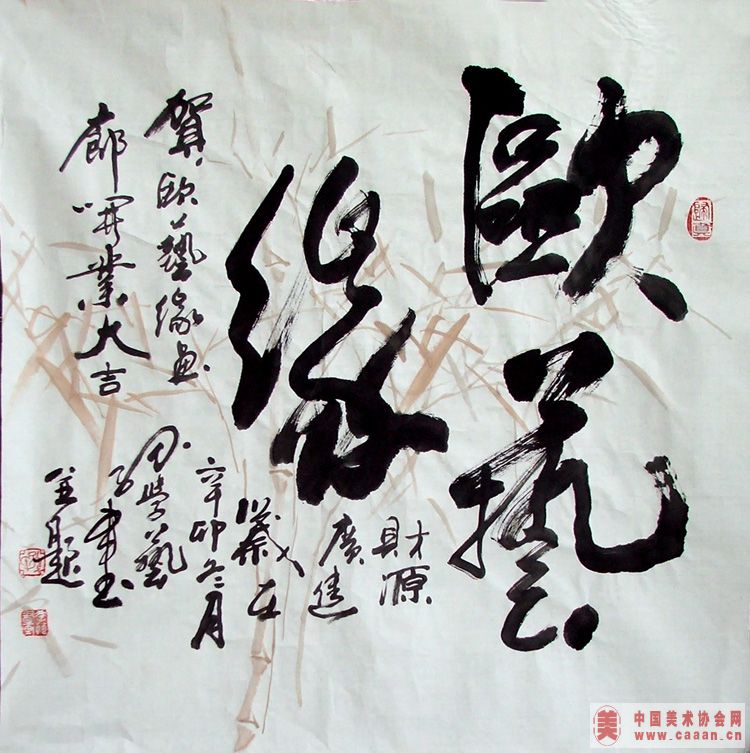 歐藝
緣
財源
廣進
辛卯冬月
賀歐藝緣画
廊開業大吉
學藝
題
美
中国美术协会网
www.caaan.cn